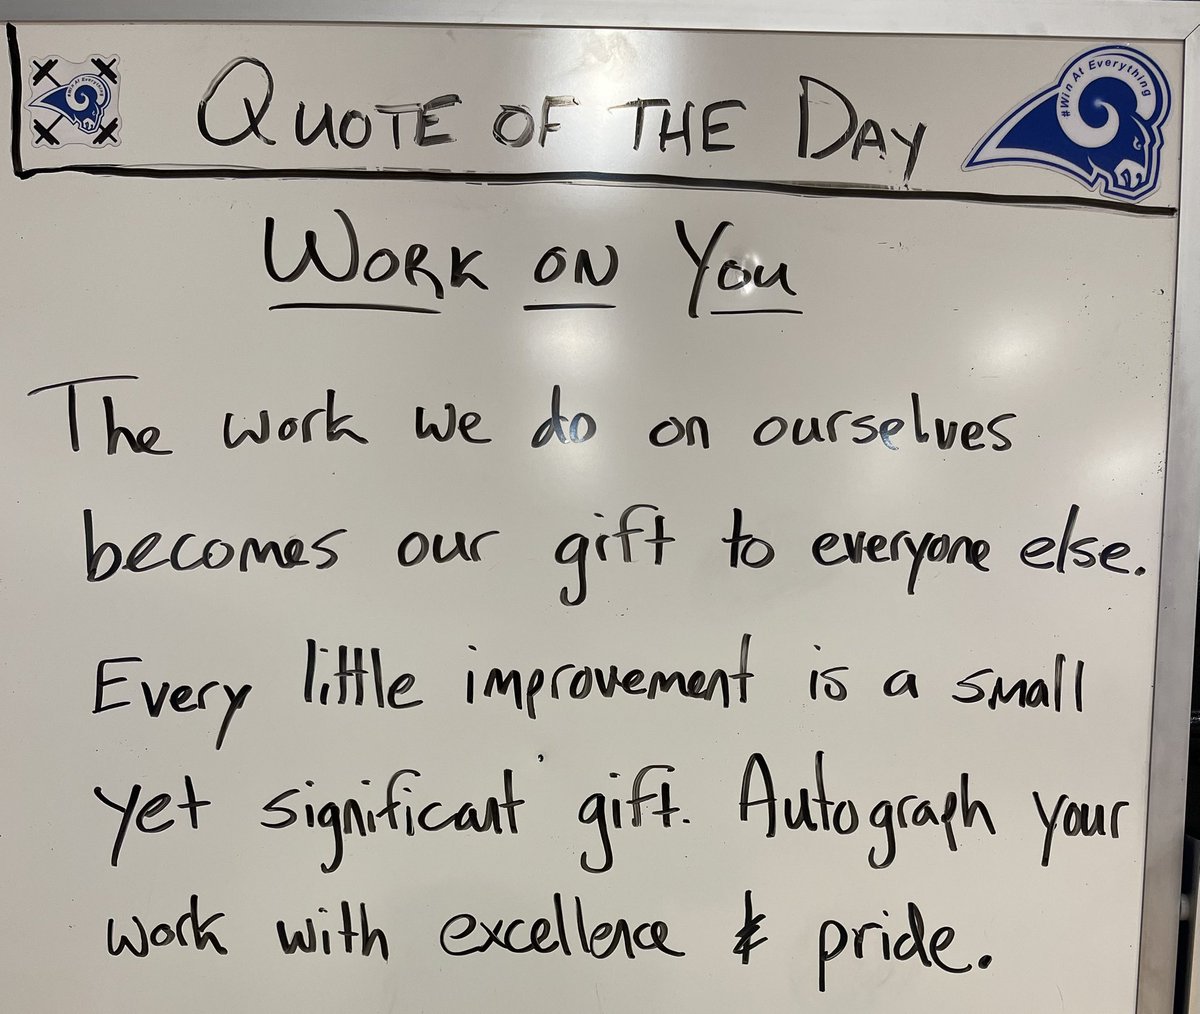 #Win At Everything
QUOTE OF THE DAY
#Win At Everything
WORK ON YOU
The work we do on ourselves
becomes our gift to everyone else.
Every little improvement is a small
yet significant gift. Autograph your
work with excellence & pride.